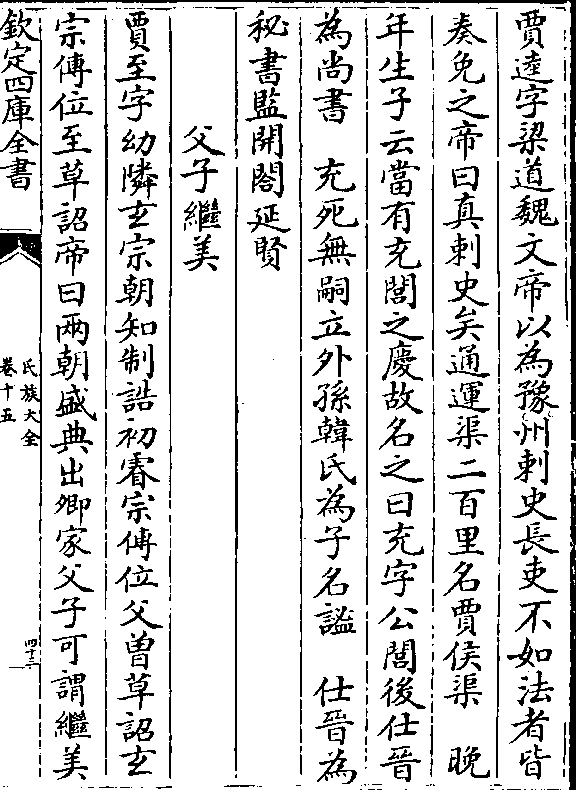 賈逵字梁道魏文帝以為豫州刺史長吏不如法者皆
奏免之帝曰真刺史矣通運渠二百里名賈侯渠　晚
年生子云當有充閭之慶故名之曰充字公閭後仕晉
為尚書　充死無嗣立外孫韓氏為子名謐　仕晉為
秘書監開閤延賢
父子繼美
賈至字幼隣玄宗朝知制誥初睿宗傳位父曽草詔玄
宗傳位至草詔帝曰兩朝盛典出卿家父子可謂繼美
欽定四庫全書
氏族大全
卷十五
四十三